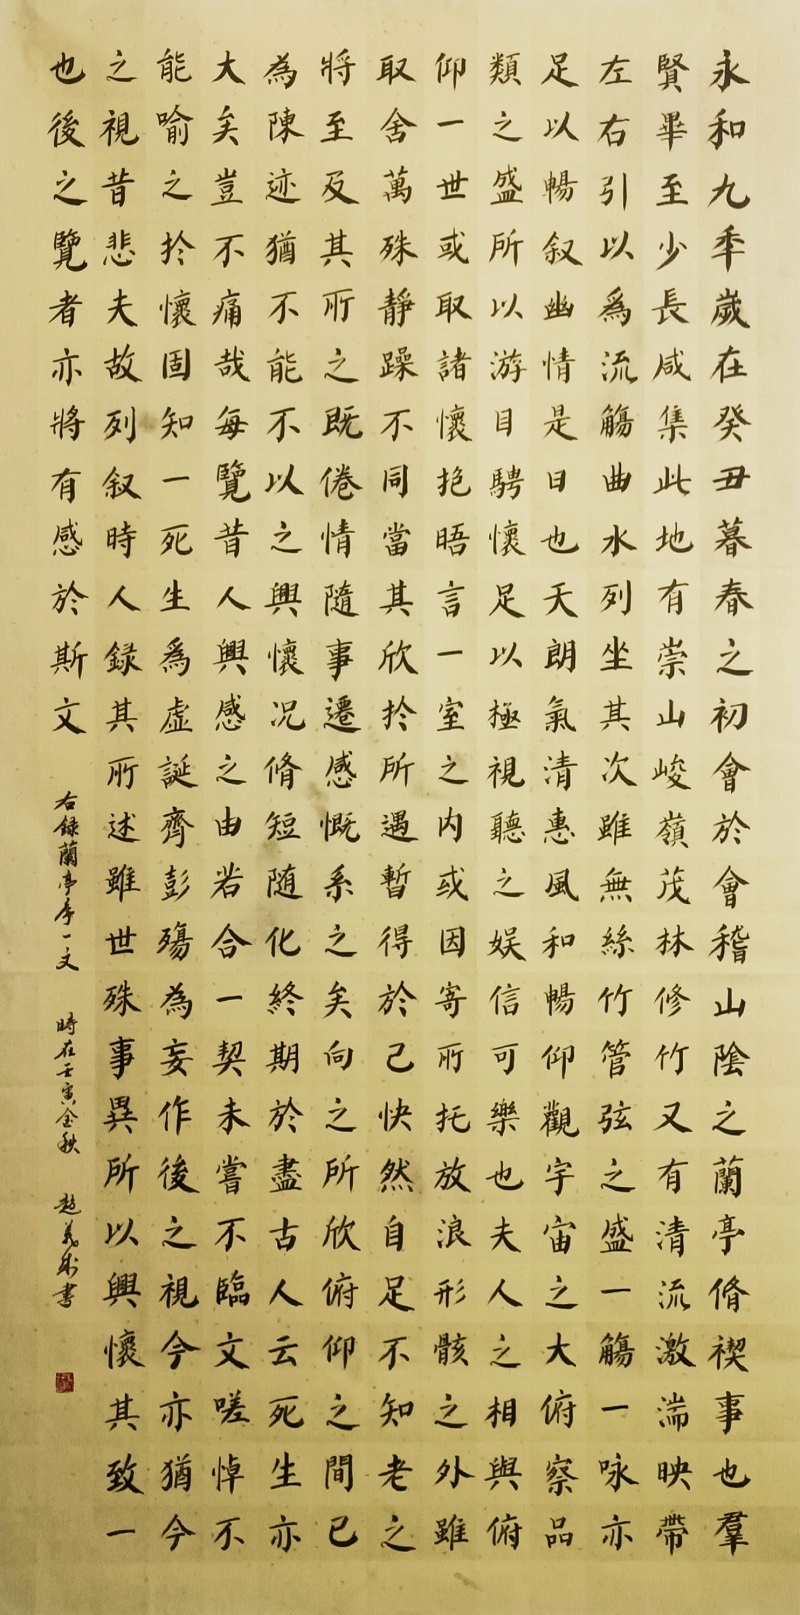 永和九秊歲在癸丑暮春之初會於會稽山陰之蘭亭脩禊事也羣
賢畢至少長咸集此地有崇山峻嶺茂林修竹又有清流激湍映帶
左右引以為流觴曲水列坐其次雖無絲竹管弦之盛一觴一咏亦
足以暢叙幽情是日也天朗氣清惠風和暢仰觀宇宙之大俯察品
類之盛所以游目騁懷足以極視聽之娱信可樂也夫人之相與俯
仰一世或取諸懷抱晤言一室之内或因寄所托放浪形骸之外雖
取舍萬殊靜躁不同當其欣扵所遇暫得於己快然自足不知老之
將至及其所之既倦情隨事遷感慨系之矣向之所欣俯仰之間已
為陳迹猶不能不以之興懷况脩短随化終期於盡古人云死生亦
大矣豈不痛哉每覽昔人興感之由若合一契未嘗不臨文嗟悼不
能喻之扵懷固知一死生爲虛誕齊彭殤為妄作後之視今亦猶今
之視昔悲夫故列叙時人録其所述雖世殊事異所以興懷其致一
也後之覽者亦將有感於斯文
右録蘭亭序一文 時在壬寅金秋 趙義成書